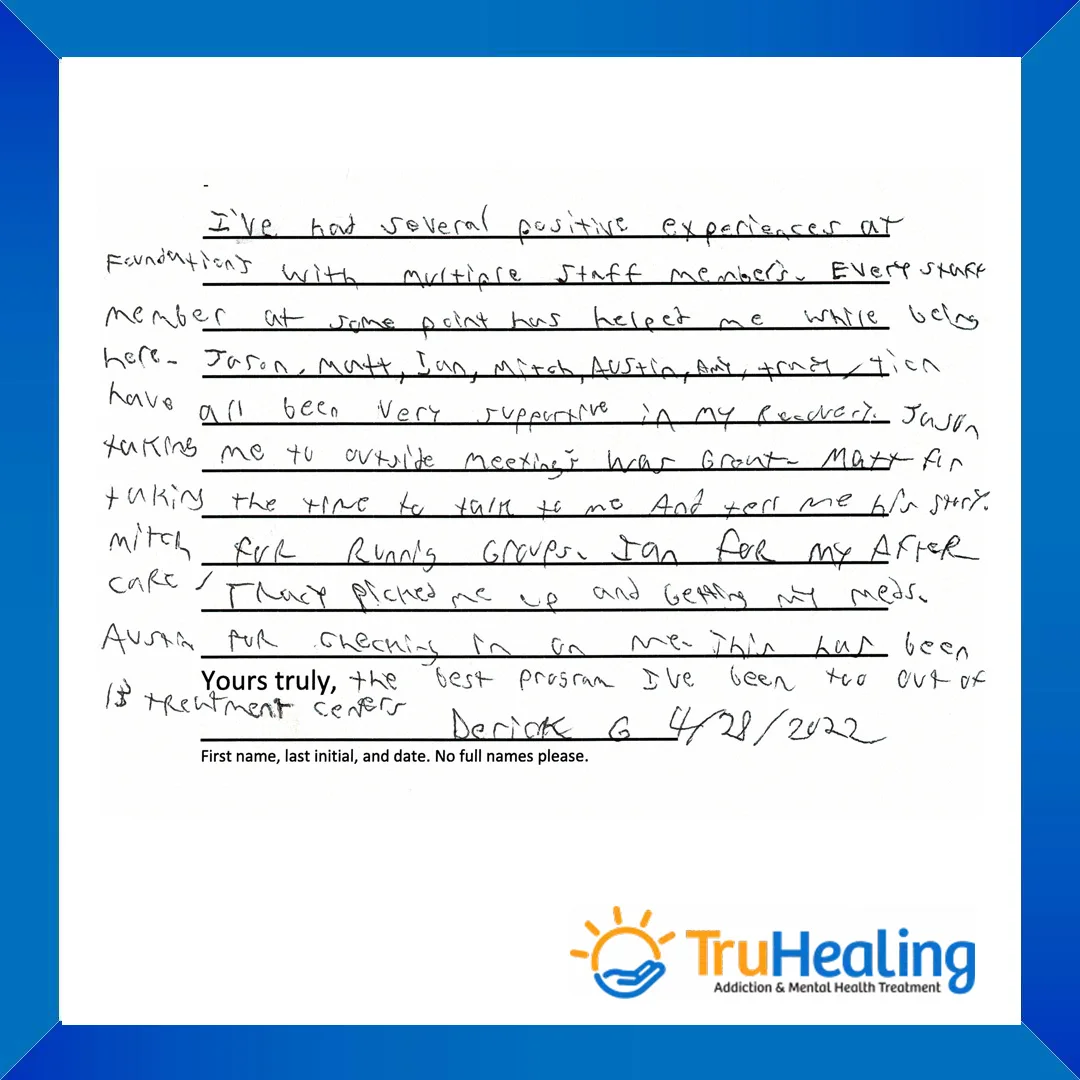 I've had several positive experiences at
Foundations with multiple staff members. Every staff
member at some point has helped me while being
here. Jason, Matt, Ian, Mitch, Austin, Amy, tracy,
have all been very supportive in my Recovery. Jason
taking me to outside meetings was Great. Matt for
taking the time to talk to me And tell me his story.
Mitch for Runnig Groups. Ian for my After
care / Tracy picked me up and Getting my meds.
Austin for checking in on me. This has been
Yours truly, the best program I've been too out of
treatment centers
Derick G 4/28/2022
First name, last initial, and date. No full names please.
TruHealing
Addiction & Mental Health Treatment